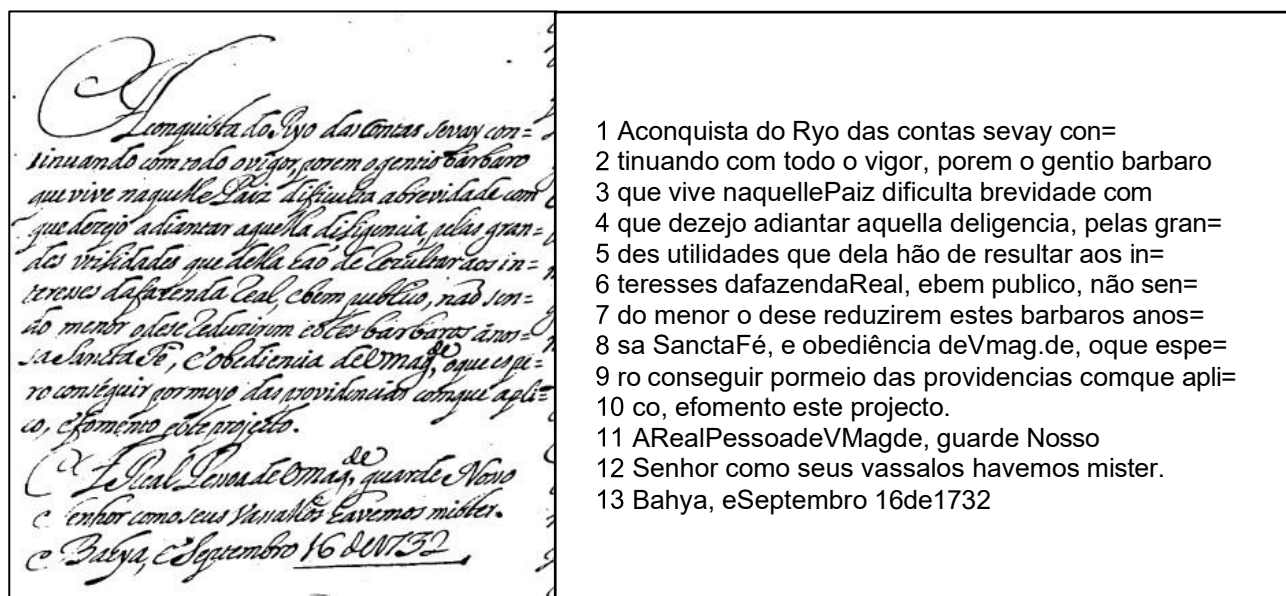 Aconquista do Ryo das Contas sevay con=
tinuando com todo o vigor, porem o gentio bárbaro
que vive naquelle Paiz dificulta abrevidade com
que dezejo adiantar aquella diligencia, pelas gran=
des utilidades que della hão de rezultar aos in=
teresses dafazenda Real, ebem publico, não sen=
do menor odese reduzirem estes barbaros ános=
sa Sancta Fé, e obediencia deVmag.de, oque espe=
ro conseguir pormeyo das providencias comque apli=
co, efomento este projecto.
A Real Pessoa de Vmag.de, guarde Nosso
Senhor como seus Vassallos havemos mister.
Bahya, e Septembro 16 de1732
1 Aconquista do Ryo das contas sevay con=
2 tinuando com todo o vigor, porem o gentio barbaro
3 que vive naquellePaiz dificulta brevidade com
4 que dezejo adiantar aquella deligencia, pelas gran=
5 des utilidades que dela hão de resultar aos in=
6 teresses dafazendaReal, ebem publico, não sen=
7 do menor o dese reduzirem estes barbaros anos=
8 sa SanctaFé, e obediência deVmag.de, oque espe=
9 ro conseguir pormeio das providencias comque apli=
10 co, efomento este projecto.
11 ARealPessoadeVMagde, guarde Nosso
12 Senhor como seus vassalos havemos mister.
13 Bahya, eSeptembro 16de1732